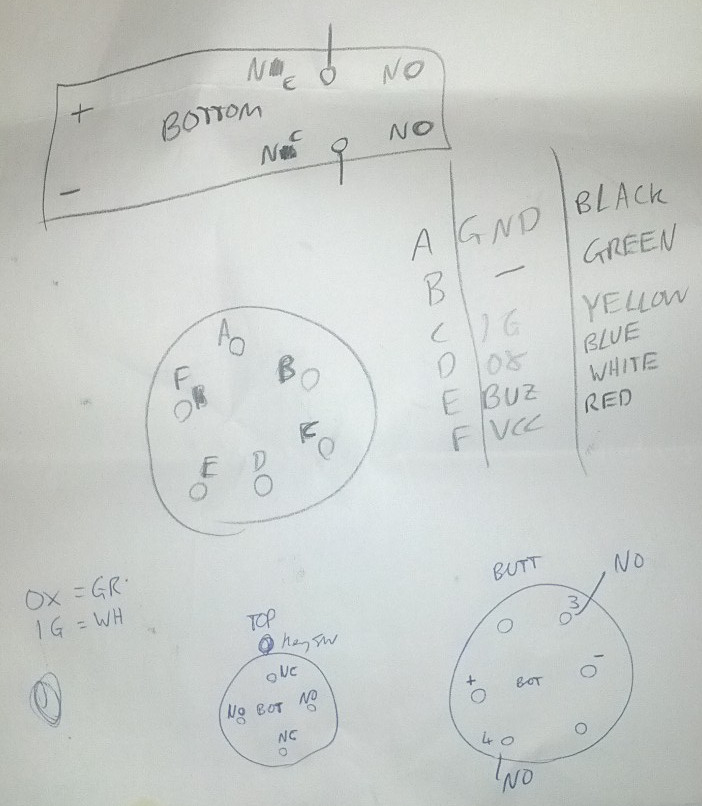 NC NO
+ BOTTOM
NC NO
-
A GND BLACK
B - GREEN
C IG YELLOW
D OX BLUE
E BUZ WHITE
F VCC RED
A
F B
E D
OX = GR.
IG = WH
TOP
Key SW
NC
NO BOT NO
NC
BUTT NO
3
+ BOT -
4
NO